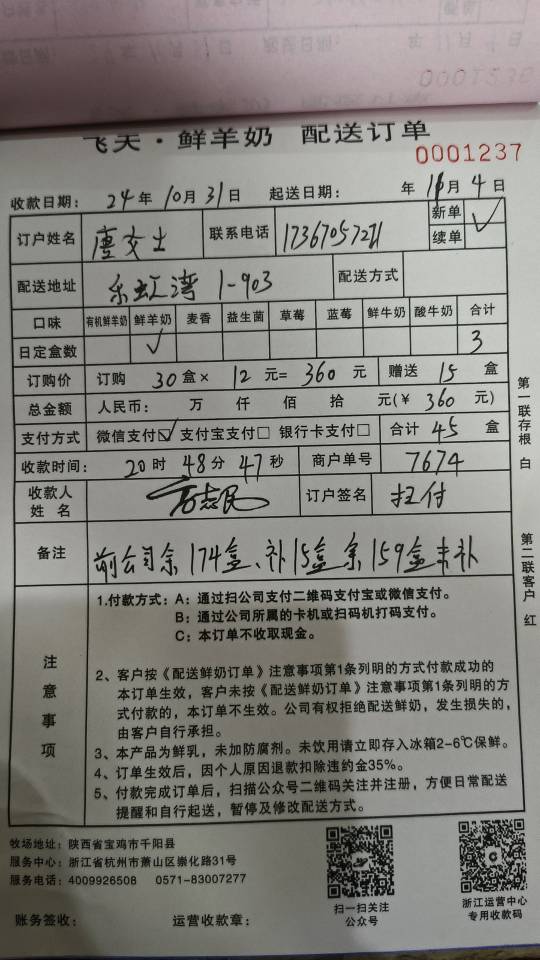 飞天·鲜羊奶 配送订单
0001237
收款日期: 24 年 10 月 31 日 起送日期: 年 11 月 4 日
订户姓名 唐交士 联系电话 17367057271 新单 ✓
续单
配送地址 东虹湾 1-903 配送方式
口味 有机鲜羊奶 鲜羊奶 麦香 益生菌 草莓 蓝莓 鲜牛奶 酸牛奶 合计
日定盒数 ✓ 3
订购价 订购 30 盒× 12 元= 360 元 赠送 15 盒
总金额 人民币: 万 仟 佰 拾 元(¥ 360 元)
支付方式 微信支付☑ 支付宝支付□ 银行卡支付□ 合计 45 盒
收款时间: 20 时 48 分 47 秒 商户单号 7674
收款人
姓 名 订户签名 扫付
备注 前公司余174盒、补15盒余159盒未补
注意事项
1.付款方式: A: 通过扫公司支付二维码支付宝或微信支付。
B: 通过公司所属的卡机或扫码机打码支付。
C: 本订单不收取现金。
2、客户按《配送鲜奶订单》注意事项第1条列明的方式付款成功的
本订单生效，客户未按《配送鲜奶订单》注意事项第1条列明的方
式付款的，本订单不生效。公司有权拒绝配送鲜奶，发生损失的，
由客户自行承担。
3、本产品为鲜乳，未加防腐剂。未饮用请立即存入冰箱2-6℃保鲜。
4、订单生效后，因个人原因退款扣除违约金35%。
5、付款完成订单后，扫描公众号二维码关注并注册，方便日常配送
提醒和自行起送，暂停及修改配送方式。
第一联存根 白
第二联客户 红
牧场地址: 陕西省宝鸡市千阳县
服务中心: 浙江省杭州市萧山区崇化路31号
服务电话: 4009926508 0571-83007277
扫一扫关注
公众号
浙江运营中心
专用收款码
账务签收: 运营收款章: